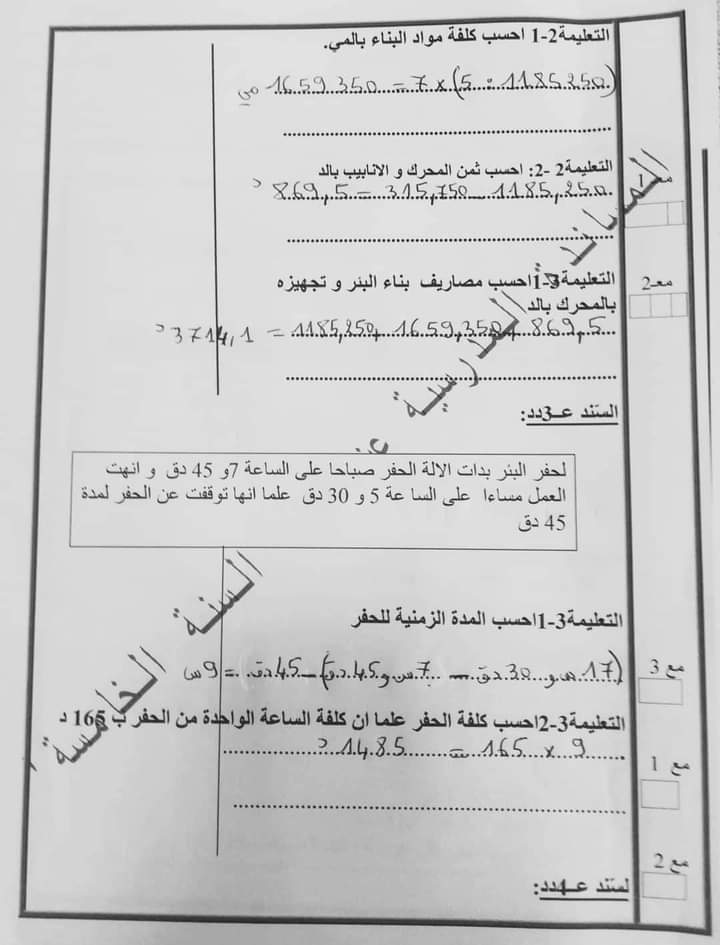 التعليمة2-1 احسب كلفة مواد البناء بالمي.
(1185250 : 5) × 7 = 1659350 مي
التعليمة2 -2: احسب ثمن المحرك و الانابيب بالد
1185,250 - 315,750 = 869,5 د
مع 1
التعليمة3-1احسب مصاريف بناء البئر و تجهيزه
بالمحرك بالد
مع2
869,5 + 1659,350 + 1185,250 = 3714,1 د
السند عـ3دد:
لحفر البئر بدات الالة الحفر صباحا على الساعة 7و 45 دق و انهت
العمل مساءا على السا عة 5 و 30 دق علما انها توقفت عن الحفر لمدة
45 دق
التعليمة3-1احسب المدة الزمنية للحفر
(17 س و 30 دق - 7 س و 45 دق) - 45 دق = 9 س
مع 3
التعليمة3-2احسب كلفة الحفر علما ان كلفة الساعة الواحدة من الحفر ب 165 د
9 × 165 = 1485 د
مع 1
مع 2
لسند عـ4دد:
المساندة المدرسية
السنة الخامسة